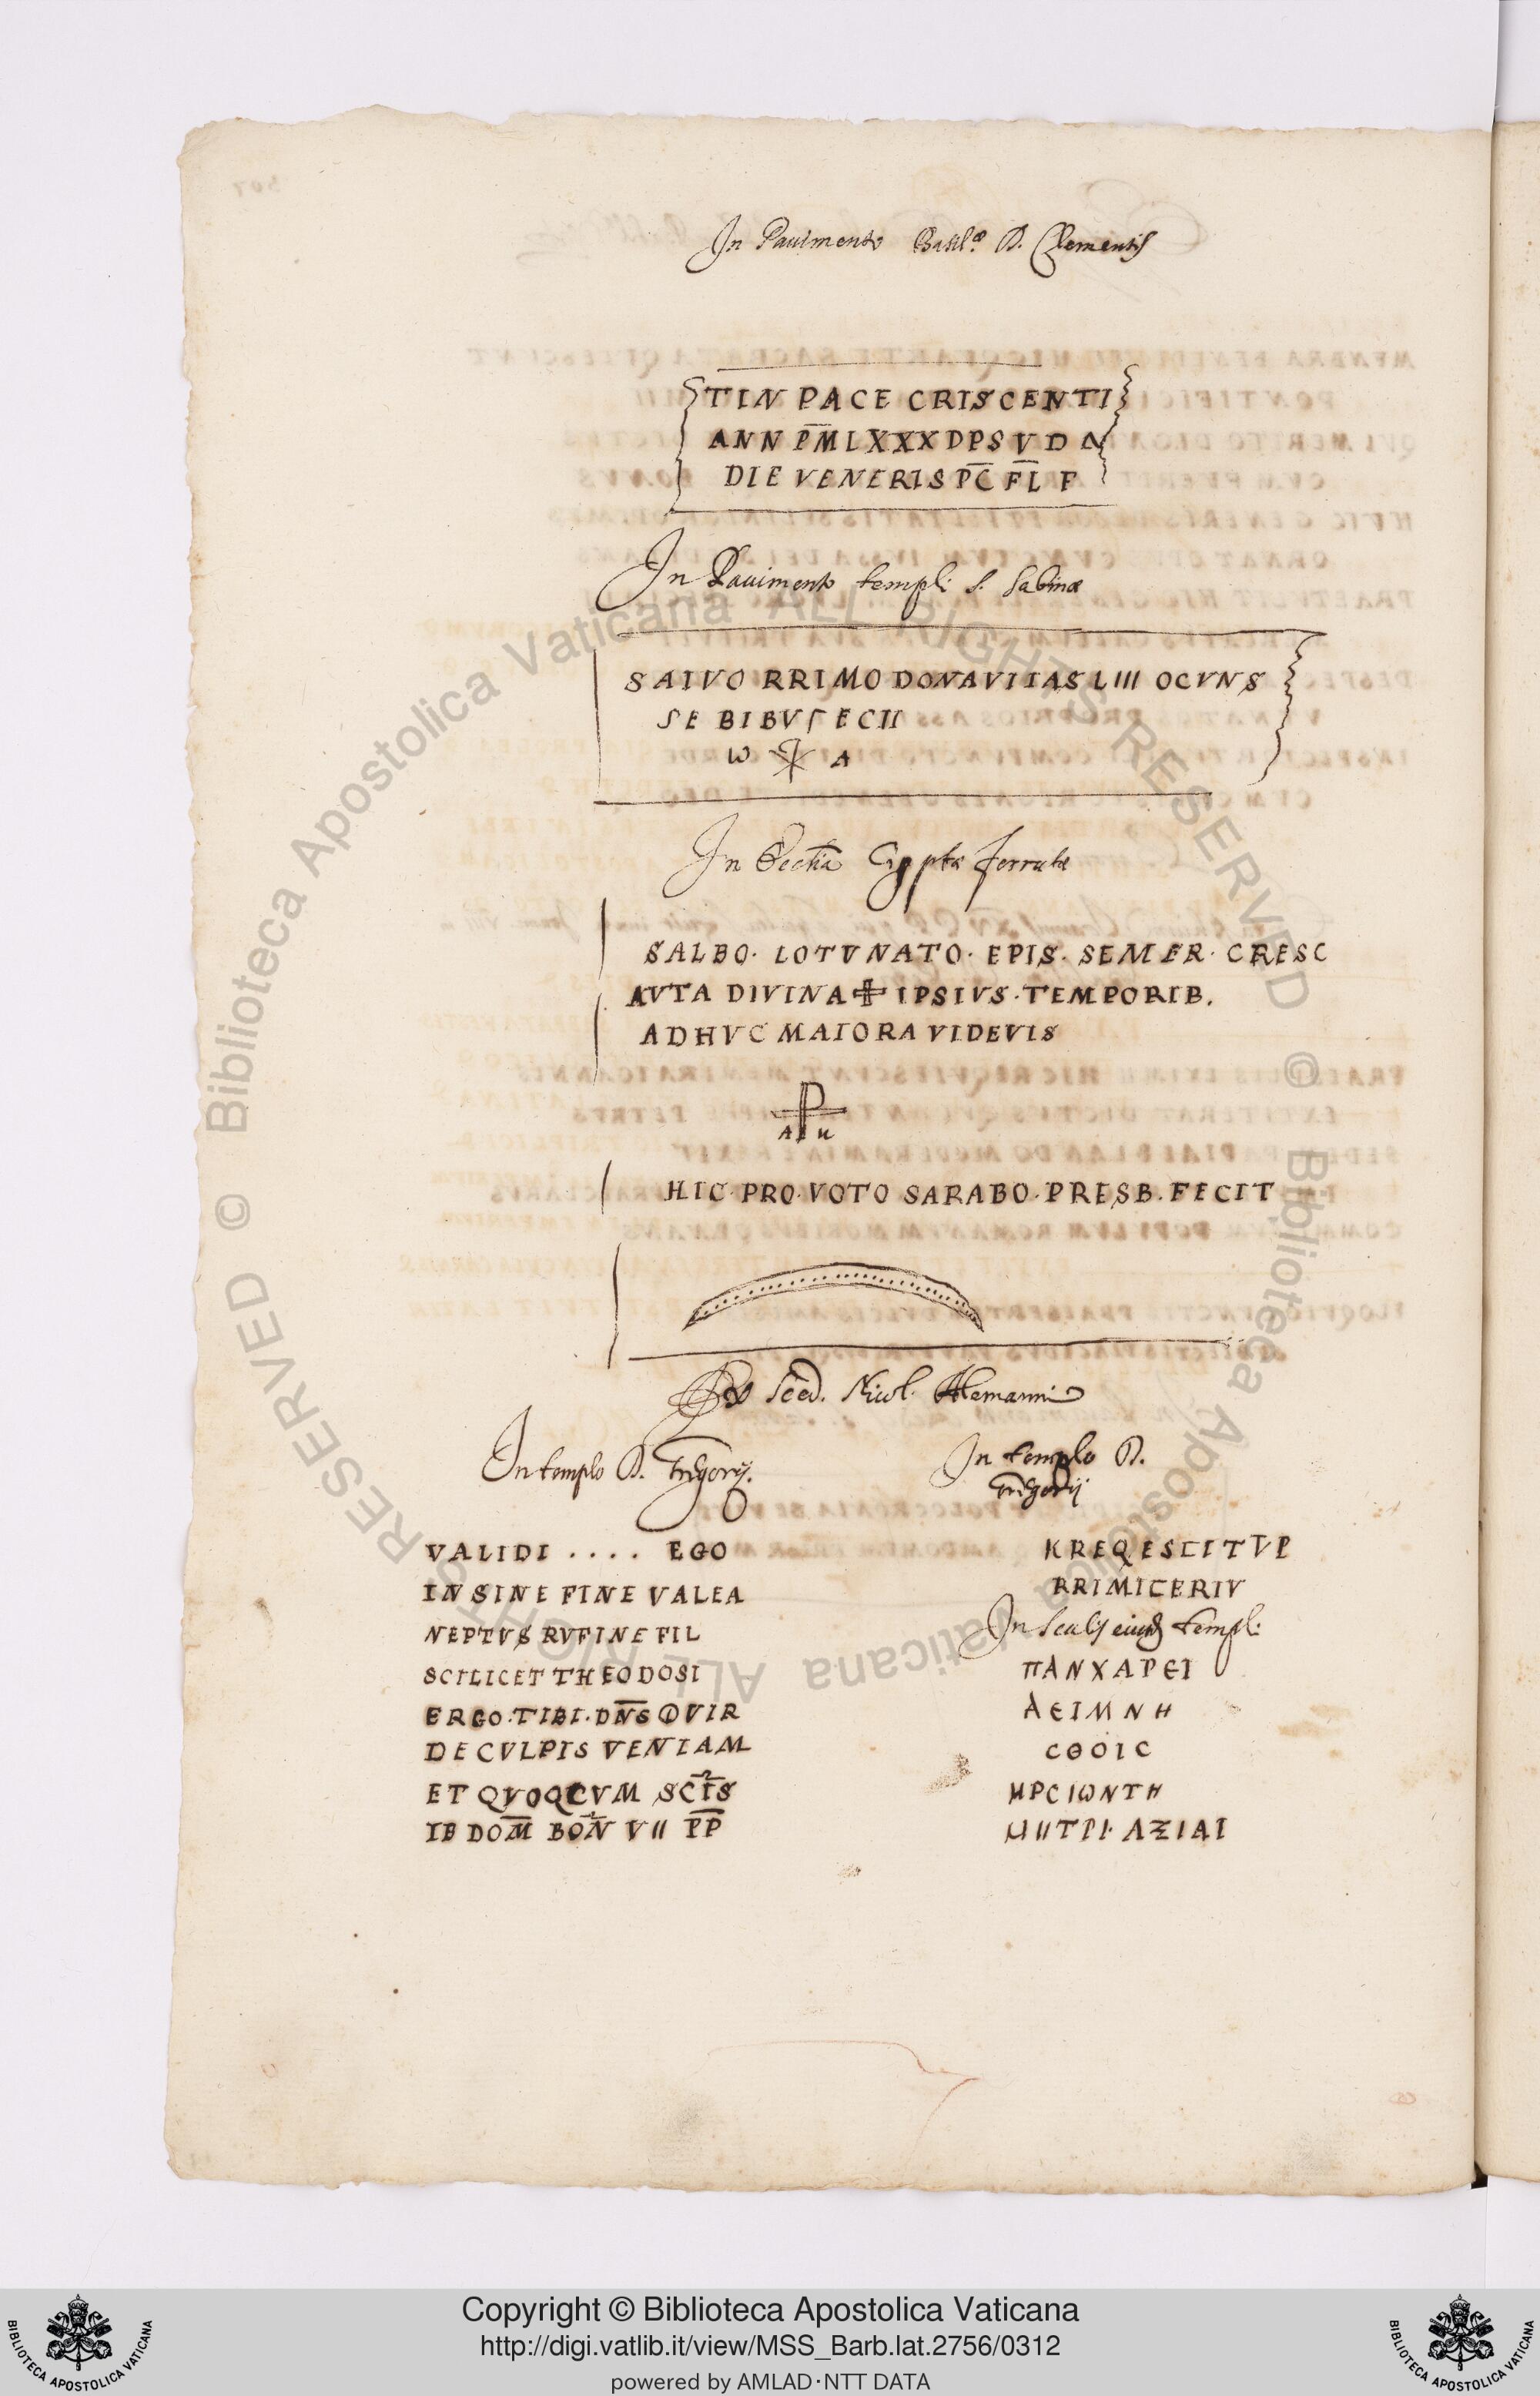 In Pauimento Basil.ae D. Clementis
TIN PACE CRISCENTI
ANN P̅M̅ L XXX D P S V D N
DIE VENERIS P̅C̅ F̅L̅ F
In Pauimento templi S. Sabinæ
SAIVO RRIMO DONAVIIAS L III OCVNS
SE BIBVS ECII
ω ☧ A
In Cryptæ ferratæ
SALBO· LOTVNATO· EPIS· SEMER· CRESC
AVTA DIVINA ✠ IPSIVS· TEMPORIB.
ADHVC MAIORA VIDEVIS
HIC· PRO· VOTO SARABO· PRESB· FECIT
Ex Sced. Nicol. Alemanni
In templo D. Gregorij.
VALIDI . . . . EGO
IN SINE FINE VALEA
NEPTVS RVFINE FIL
SCILICET THEODOSI
ERGO· TIBI· DN̅S QVIR
DE CVLPIS VENIAM
ET QVOQ CVM SCI̅S
IB DOM̅ BON̅ V II P̅P̅
In templo D.
Gregorij
KREQESCITVP
RRIMICERIV
In scalis eiusd templi
ΠΑΝΧΑΡΕΙ
ΑΕΙΜΝΗ
CΘΟΙC
ΗΡCΙΩΝΤΗ
ΜΙΙΤΡΙ· ΛΞΙΑΙ
Copyright © Biblioteca Apostolica Vaticana
http://digi.vatlib.it/view/MSS_Barb.lat.2756/0312
powered by AMLAD·NTT DATA
BIBLIOTECA APOSTOLICA VATICANA
BIBLIOTECA APOSTOLICA VATICANA